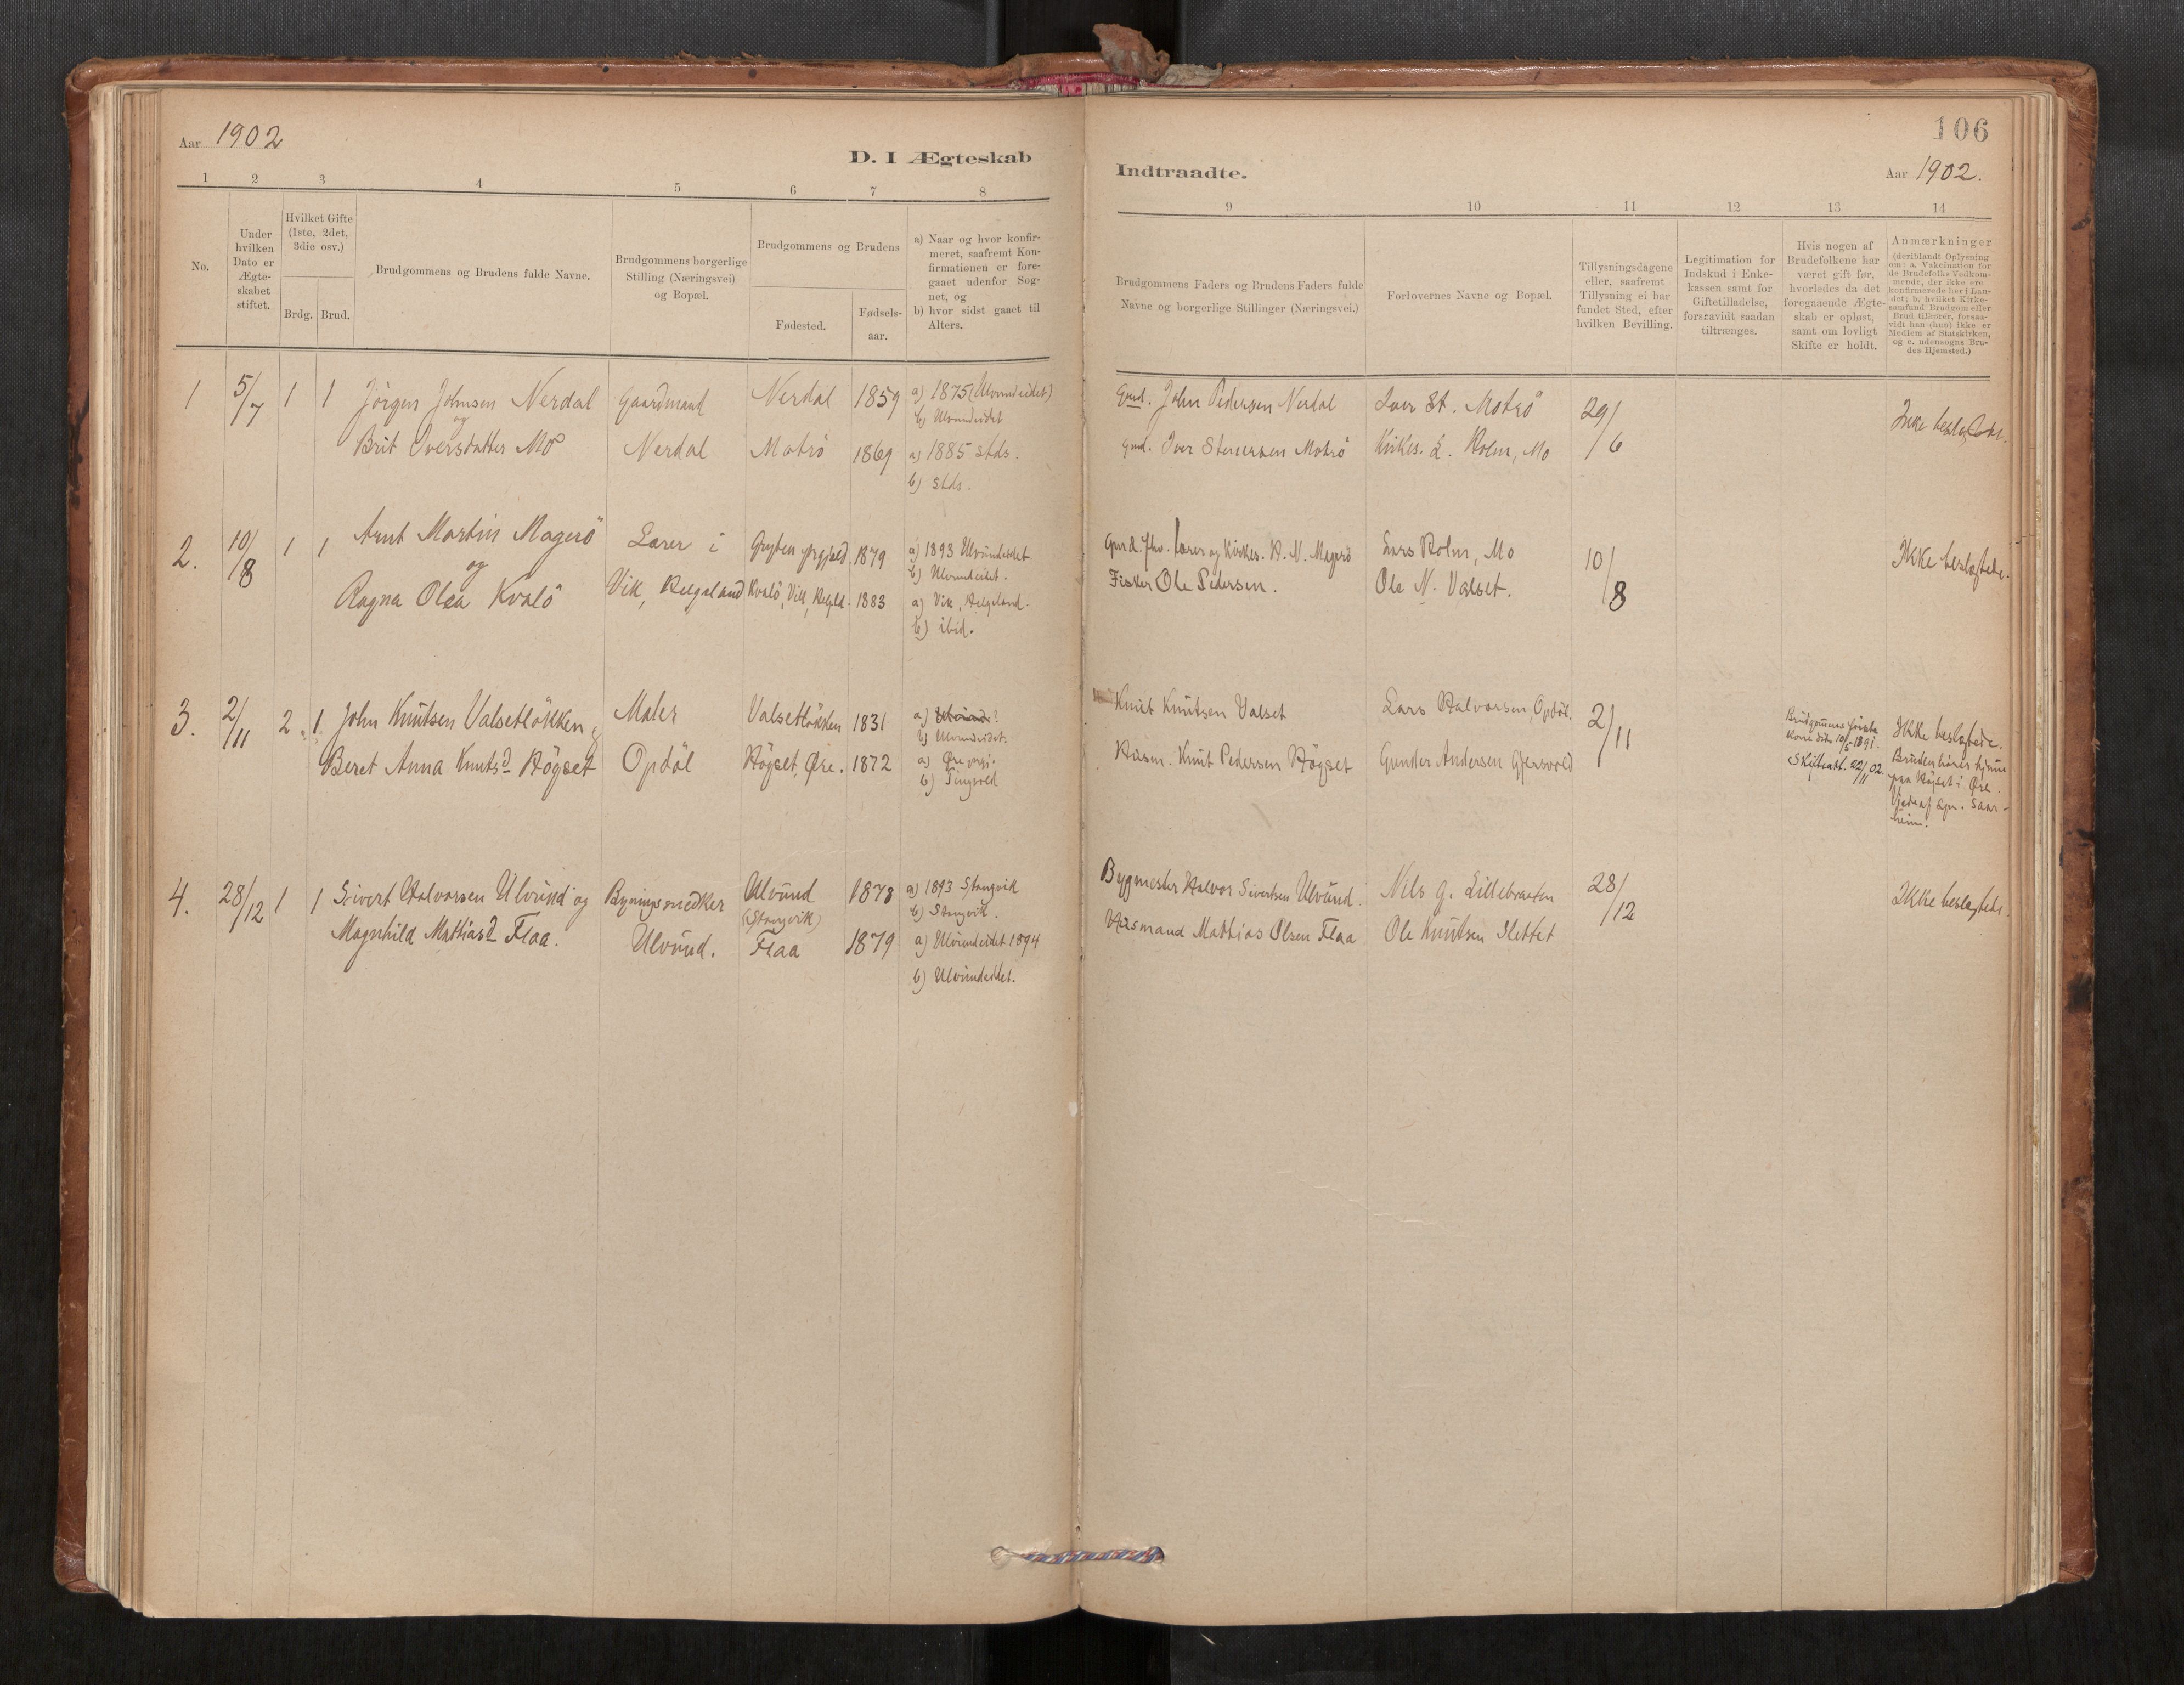 Aar 1902
D. I Ægteskab
1 2 3 4 5 6 7 8
No.
Under hvilken Dato er Ægte-skabet stiftet.
Hvilket Gifte (1ste, 2det, 3die osv.)
Brdg. Brud.
Brudgommens og Brudens fulde Navne.
Brudgommens borgerlige Stilling (Næringsvei) og Bopæl.
Brudgommens og Brudens
Fødested.
Fødsels-aar.
a) Naar og hvor konfir-meret, saafremt Kon-firmationen er fore-gaaet udenfor Sog-net, og
b) hvor sidst gaaet til Alters.
1 5/7 1 1 Jörgen Johnsen Nerdal Gaardmand Nerdal 1859 a) 1875 (Ulvundeidet)
og b) Ulvundeidet
Brit Iversdatter Mo Nerdal Motrö 1869 a) 1885 stds.
b) stds.
2. 10/8 1 1 Arnt Martin Magerö Lærer i Gryten prgjæld. 1879 a) 1893 Ulvundeidet
og b) Ulvundeidet.
Ragna Olea Kvalö Vik, Helgeland Kvalö, Vik, Helgld. 1883 a) Vik, Helgeland.
b) ibid.
3. 2/11 2. 1. John Knutsen Valsetlökken Maler Valsetlökken 1831 a) ?
b) Ulvundeidet.
Beret Anna Knutsd. Högset Opdöl Högset, Øre. 1872 a) Øre prgj.
b) Tingvold
4. 28/12 1 1 Sivert Halvorsen Ulvund og Bygningssnedker Ulvund 1878 a) 1893 Stangvik
(Stangvik) b) Stangvik.
Magnhild Mathiasd. Flaa. Ulvund. Flaa 1879 a) Ulvundeidet 1894
b) Ulvundeidet.
106
Indtraadte.
Aar 1902.
9 10 11 12 13 14
Brudgommens Faders og Brudens Faders fulde Navne og borgerlige Stillinger (Næringsvei.)
Forlovernes Navne og Bopæl.
Tillysningsdagene eller, saafremt Tillysning ei har fundet Sted, efter hvilken Bevilling.
Legitimation for Indskud i Enke-kassen samt for Giftetilladelse, forsaavidt saadan tiltrænges.
Hvis nogen af Brudefolkene har været gift før, hvorledes da det foregaaende Ægte-skab er opløst, samt om lovligt Skifte er holdt.
Anmærkninger (deriblandt Oplysning om: a. Vakcination for de Brudefolks Vedkom-mende, der ikke ere konfirmerede her i Lan-det; b. hvilket Kirke-samfund Brudgom eller Brud tilhører, forsaa-vidt han (hun) ikke er Medlem af Statskirken, og c. udensogns Bru-des Hjemsted.)
Gmd. John Pedersen Nerdal Iver St. Motrö 29/6 Ikke beslægtede.
Gmd. Iver Steuersen Motrö Kirkes. L. Holm, Mo
Gmd. fhv. lærer og Kirkes. H. N. Magerö Lars Holm, Mo 10/8 Ikke beslægtede.
Fisker Ole Pedersen. Ole N. Valset.
Knut Knutsen Valset Lars Halvorsen, Opdöl. 2/11 Brudgommens første Kone död 10/5 1891. Ikke beslægtede.
Husm. Knut Pedersen Högset Gunder Andersen Gjersvold Skifteatt. 22/11 02. Bruden hører hjemme paa Högset i Øre.
Bygmester Halvor Sivertsen Ulvund. Nils G. Lillebraaten 28/12 Ikke beslægtede.
Husmand Mathias Olsen Flaa Ole Knutsen Slettet